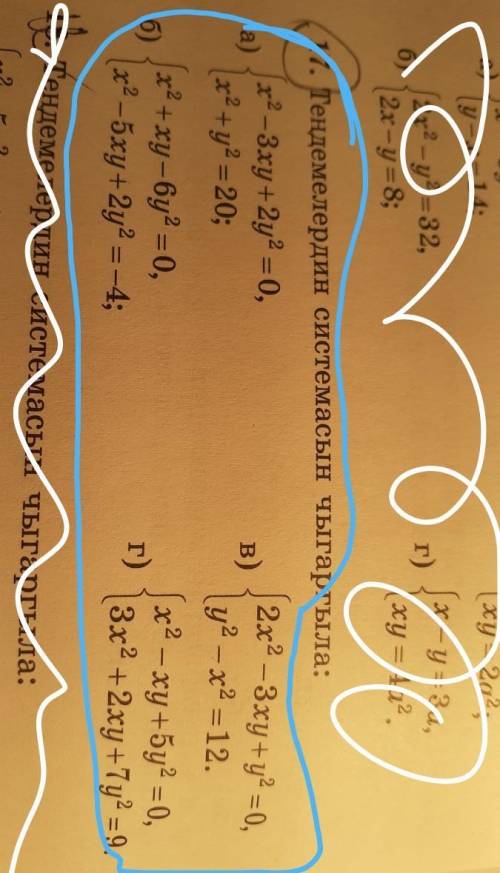 y − x = 14;
б) { 2x² − y² = 32,
2x − y = 8;
xy = 2a²;
г) { x − y = 3a,
xy = 4a².
17. Теңдемелердин системасын чыгаргыла:
а) { x² − 3xy + 2y² = 0,
x² + y² = 20;
в) { 2x² − 3xy + y² = 0,
y² − x² = 12.
б) { x² + xy − 6y² = 0,
x² − 5xy + 2y² = −4;
г) { x² − xy + 5y² = 0,
3x² + 2xy + 7y² = 9.
Теңдемелердин системасын чыгаргыла: